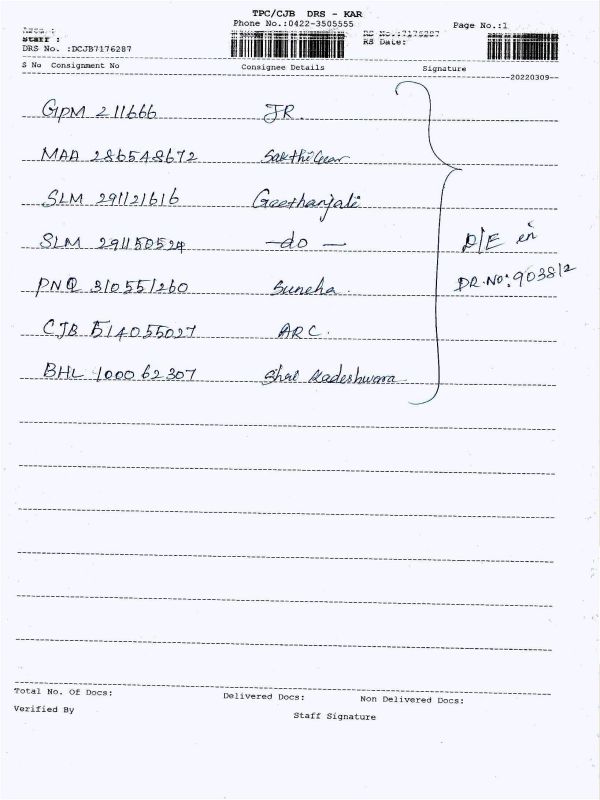 TPC/CJB DRS - KAR
Phone No.:0422-3505555 Page No.:1
Area :
Staff : RS No.:7176287
DRS No. :DCJB7176287 RS Date:
S No Consignment No Consignee Details Signature
20220309
GPM 211666 JR.
MAA 286548672
SLM 291121616 Geethanjali
SLM 291150524 - do -
D/E in
PNQ 310551260 Suneha.
DR.No: 903812
CJB 514055027 ARC.
BHL 100062307
Total No. Of Docs: Delivered Docs: Non Delivered Docs:
Verified By Staff Signature